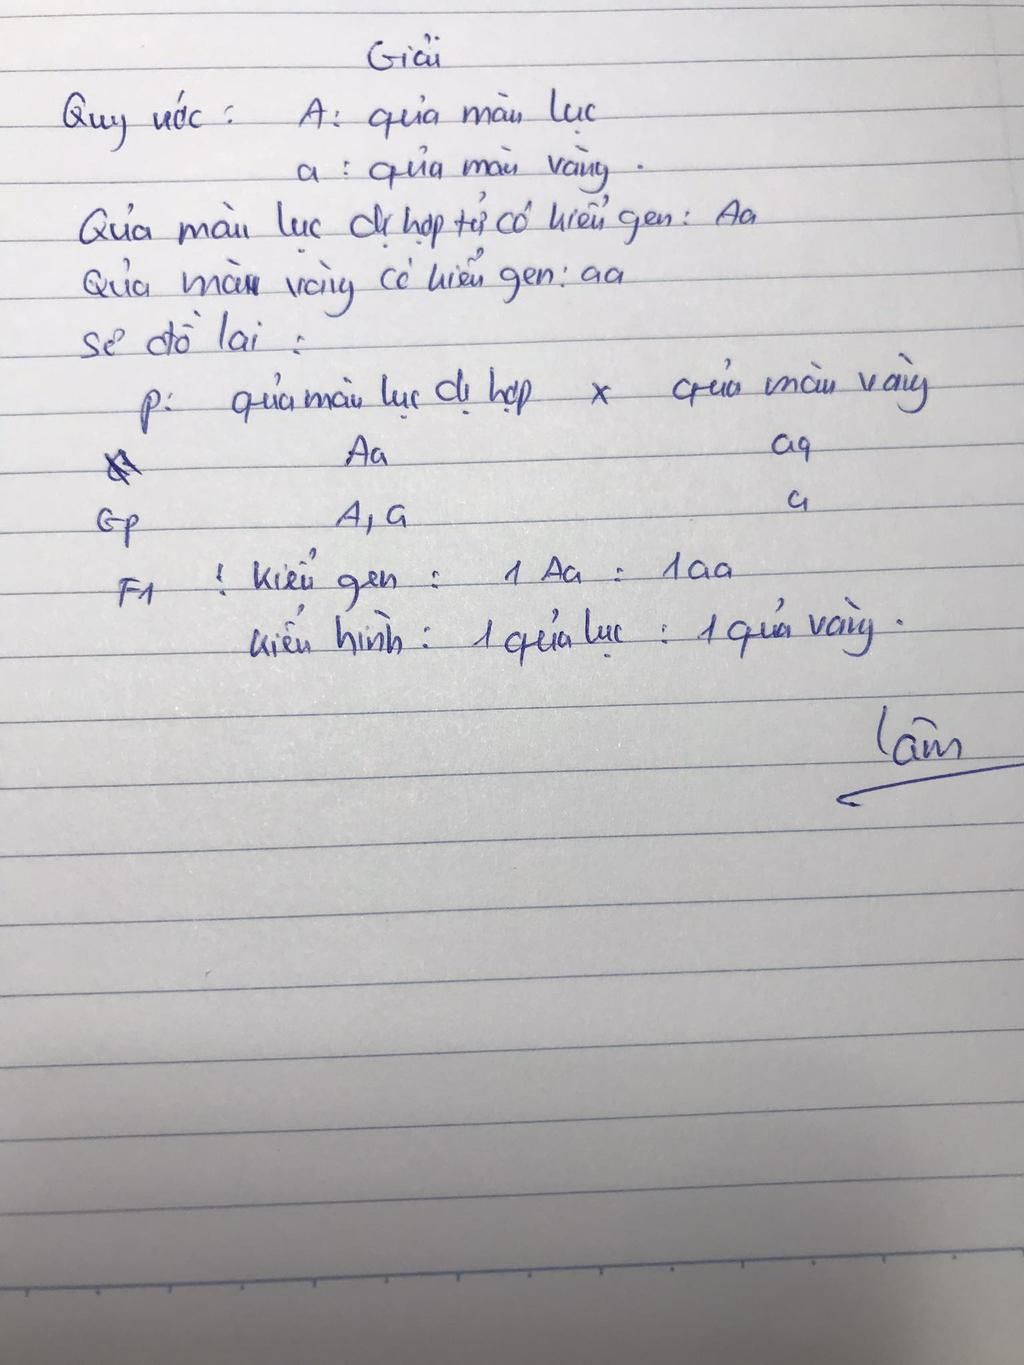 Giải
Quy ước : A: quả màu lục
a : quả màu vàng .
Quả màu lục dị hợp tử có kiểu gen: Aa
Quả màu vàng có kiểu gen: aa
Sơ đồ lai :
p: quả màu lục dị hợp x quả màu vàng
Aa aa
Gp A, a a
F1 : kiểu gen : 1 Aa : 1aa
kiểu hình : 1 quả lục : 1 quả vàng .
lâm